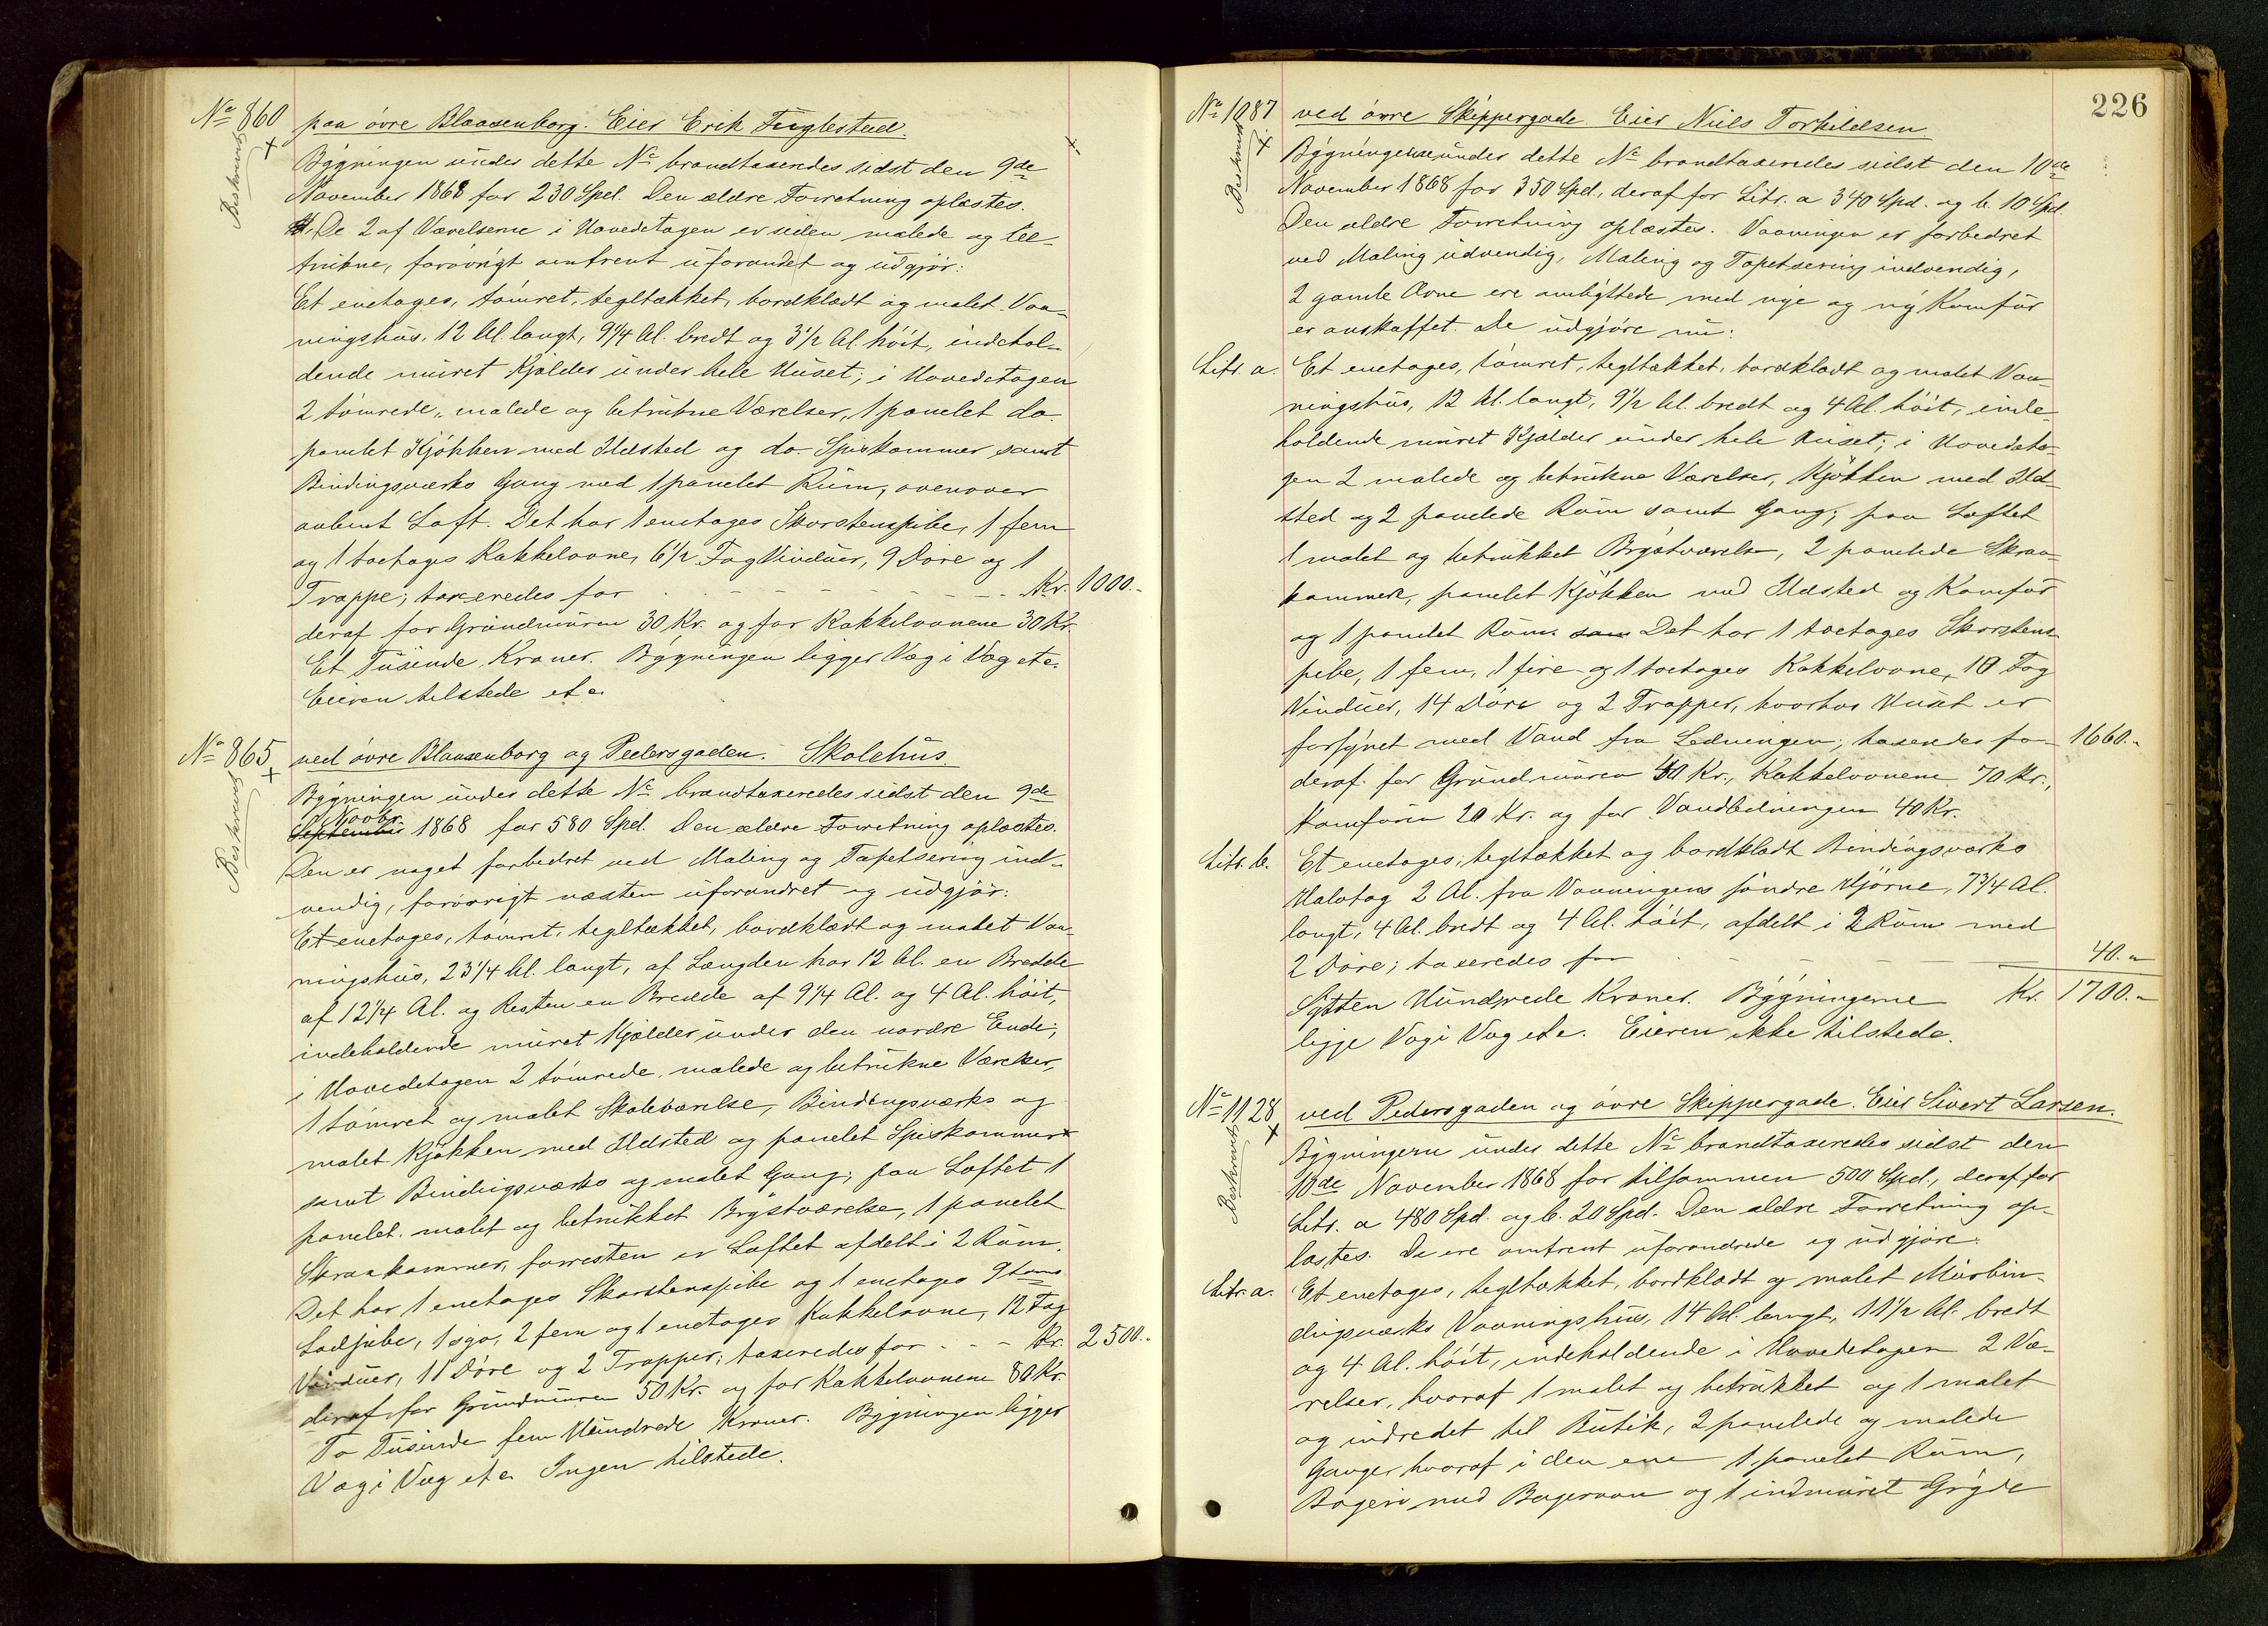 No 860 paa övre Blaasenborg. Eier Erik Fuglestad.
Beskrevet
Bygningen under dette No brandtaxeredes sidst den 9de
November 1868 for 230 Spd. Den ældre Forretning oplæstes.
De 2 af Værelserne i Hovedetagen er siden malede og be-
trukne, forøvrigt omtrent uforandret og udgjør:
Et enetages, tömret, tegltækket, bordklædt og malet Vaa-
ningshus, 12 Al. langt, 9 1/4 Al. bredt og 3 1/2 Al. höit, indehol-
dende muret Kjælder under hele Huset; i Hovedetagen
2 tömrede, malede og betrukne Værelser, 1 panelet do.
panelet Kjökken med Ildsted og do. Spiskammer samt
Bindingsværks Gang med 1 panelet Rum, ovenover
aabent Loft. Det har 1 enetages Skorstenspibe, 1 fem
og 1 toetages Kakkelovne, 6 1/2 Fag Vinduer, 9 Döre og 1
Trappe; taxeredes for - - - - - Kr. 1000.-
deraf for Grundmuren 30 Kr. og for Kakkelovnene 30 Kr.
Et Tusinde Kroner. Bygningen ligger Væg i Væg etc.
Eieren tilstede etc.
No 865 ved övre Blaasenborg og Pedersgaden. Skolehus.
Beskrevet
Bygningen under dette No brandtaxeredes sidst den 9de
Novbr.
September 1868 for 580 Spd. Den ældre Forretning oplæstes.
Den er noget forbedret ved Maling og Tapetsering ind-
vendig, forøvrigt næsten uforandret og udgjør:
Et enetages, tömret, tegltækket, bordklædt og malet Vaa-
ningshus, 23 1/4 Al. langt, af Længden har 12 Al. en Bredde
af 12 1/4 Al. og Resten en Bredde af 9 1/4 Al. og 4 Al. höit,
indeholdende muret Kjælder under den nordre Ende,
i Hovedetagen 2 tömrede, malede og betrukne Værelser,
1 tömret og malet Skoleværelse, Bindingsværks og
malet Kjökken med Ildsted og panelet Spiskammer
samt Bindingsværks og malet Gang; paa Loftet 1
panelet, malet og betrukket Brystværelse, 1 panelet
Skraakammer, forresten er Loftet afdelt i 2 Rum.
Det har 1 enetages Skorstenspibe og 1 enetages 9 toms
Lodpibe, 1 sex, 2 fem og 1 enetages Kakkelovne, 12 Fag
Vinduer, 11 Döre og 2 Trapper; taxeredes for - - - Kr. 2500.-
deraf for Grundmuren 50 Kr. og for Kakkelovnene 80 Kr.
To Tusinde fem Hundrede Kroner. Bygningen ligger
Væg i Væg etc. Ingen tilstede.
226
No 1087 ved övre Skippergade. Eier Niels Torkildsen
Beskrevet
Bygningerne under dette No brandtaxeredes sidst den 10de
November 1868 for 350 Spd., deraf for Litr. a 340 Spd. og b. 10 Spd.
Den ældre Forretning oplæstes. Vaaningen er forbedret
ved Maling udvendig, Maling og Tapetsering indvendig,
2 gamle Ovne ere ombyttede med nye og ny Komfur
er anskaffet. De udgjöre nu:
Litr. a. Et enetages, tömret, tegltækket, bordklædt og malet Vaa-
ningshus, 12 Al. langt, 9 1/2 Al. bredt og 4 Al. höit, inde-
holdende muret Kjælder under hele Huset; i Hovedeta-
gen 2 malede og betrukne Værelser, Kjökken med Ild-
sted og 2 panelede Rum samt Gang; paa Loftet
1 malet og betrukket Brystværelse, 2 panelede Skraa-
kammere, panelet Kjökken med Ildsted og Komfur
og 1 panelet Rum. sam Det har 1 toetages Skorstens-
pibe, 1 fem, 1 fire og 1 toetages Kakkelovne, 10 Fag
Vinduer, 14 Döre og 2 Trapper, hvorhos Huset er
forsynet med Vand fra Ledningen; taxeredes for 1660.-
deraf for Grundmuren 40 Kr., Kakkelovnene 70 Kr.,
Komfuren 20 Kr. og for Vandledningen 40 Kr.
Litr. b. Et enetages, tegltækket og bordklædt Bindingsværks
Halvtag 2 Al. fra Vaaningens söndre Hjörne, 7 3/4 Al.
langt, 4 Al. bredt og 4 Al. höit, afdelt i 2 Rum med
2 Döre; taxeredes for - - - 40.-
Sytten Hundrede Kroner. Bygningerne Kr. 1700.-
ligge Væg i Væg etc. Eieren ikke tilstede.
No 1128 ved Pedersgaden og övre Skippergade. Eier Sivert Larsen.
Beskrevet
Bygningerne under dette No brandtaxeredes sidst den
10de November 1868 for tilsammen 500 Spd., deraf for
Litr. a 480 Spd. og b. 20 Spd. Den ældre Forretning op-
læstes. De ere omtrent uforandrede og udgjöre:
Litr. a. Et enetages, tegltækket, bordklædt og malet Murbin-
dingsværks Vaaningshus, 14 Al. langt, 11 1/2 Al. bredt
og 4 Al. höit, indeholdende i Hovedetagen 2 Væ-
relser, hvoraf 1 malet og betrukket og 1 malet
og indredet til Butik, 2 panelede og malede
Gange hvoraf i den ene 1 panelet Rum,
Bageri med Bagerovn og 1 indmuret Gryde